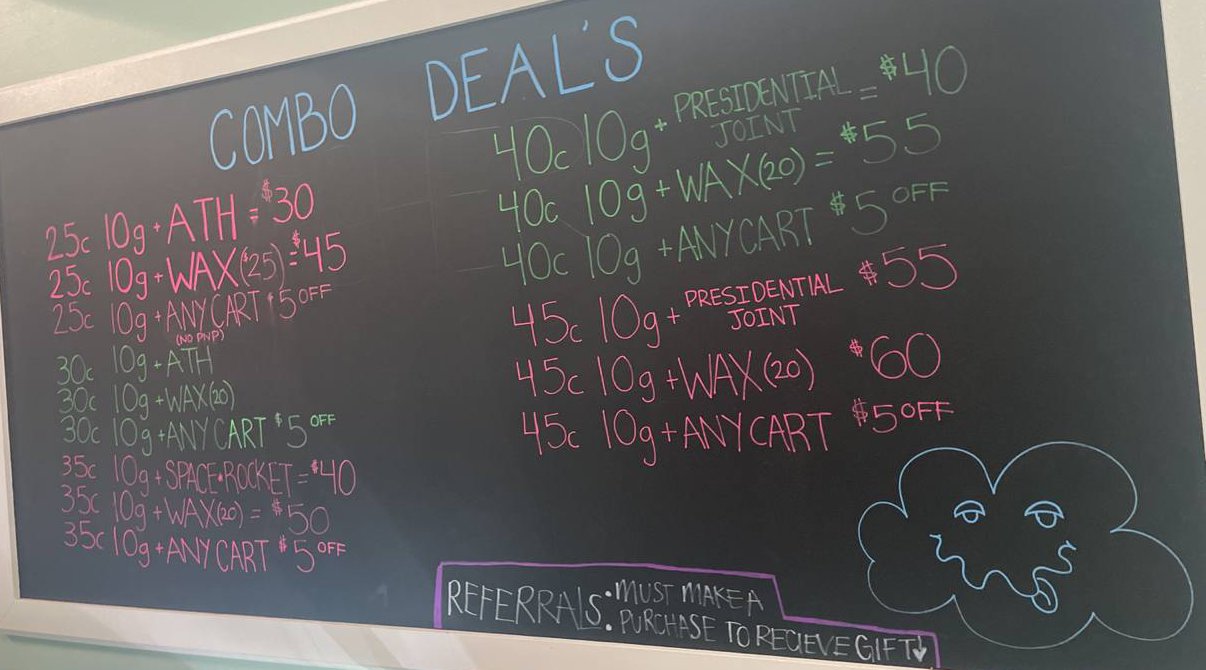 COMBO DEAL'S
25c 10g + ATH = $30
25c 10g + WAX ($25) = $45
25c 10g + ANY CART $5 OFF
(NO PNP)
30c 10g + ATH
30c 10g + WAX (20)
30c 10g + ANY CART $5 OFF
35c 10g + SPACE ROCKET = $40
35c 10g + WAX (20) = $50
35c 10g + ANY CART $5 OFF
40c 10g + PRESIDENTIAL JOINT = $40
40c 10g + WAX (20) = $55
40c 10g + ANY CART $5 OFF
45c 10g + PRESIDENTIAL JOINT $55
45c 10g + WAX (20) $60
45c 10g + ANY CART $5 OFF
REFERRALS: MUST MAKE A
PURCHASE TO RECIEVE GIFT↓